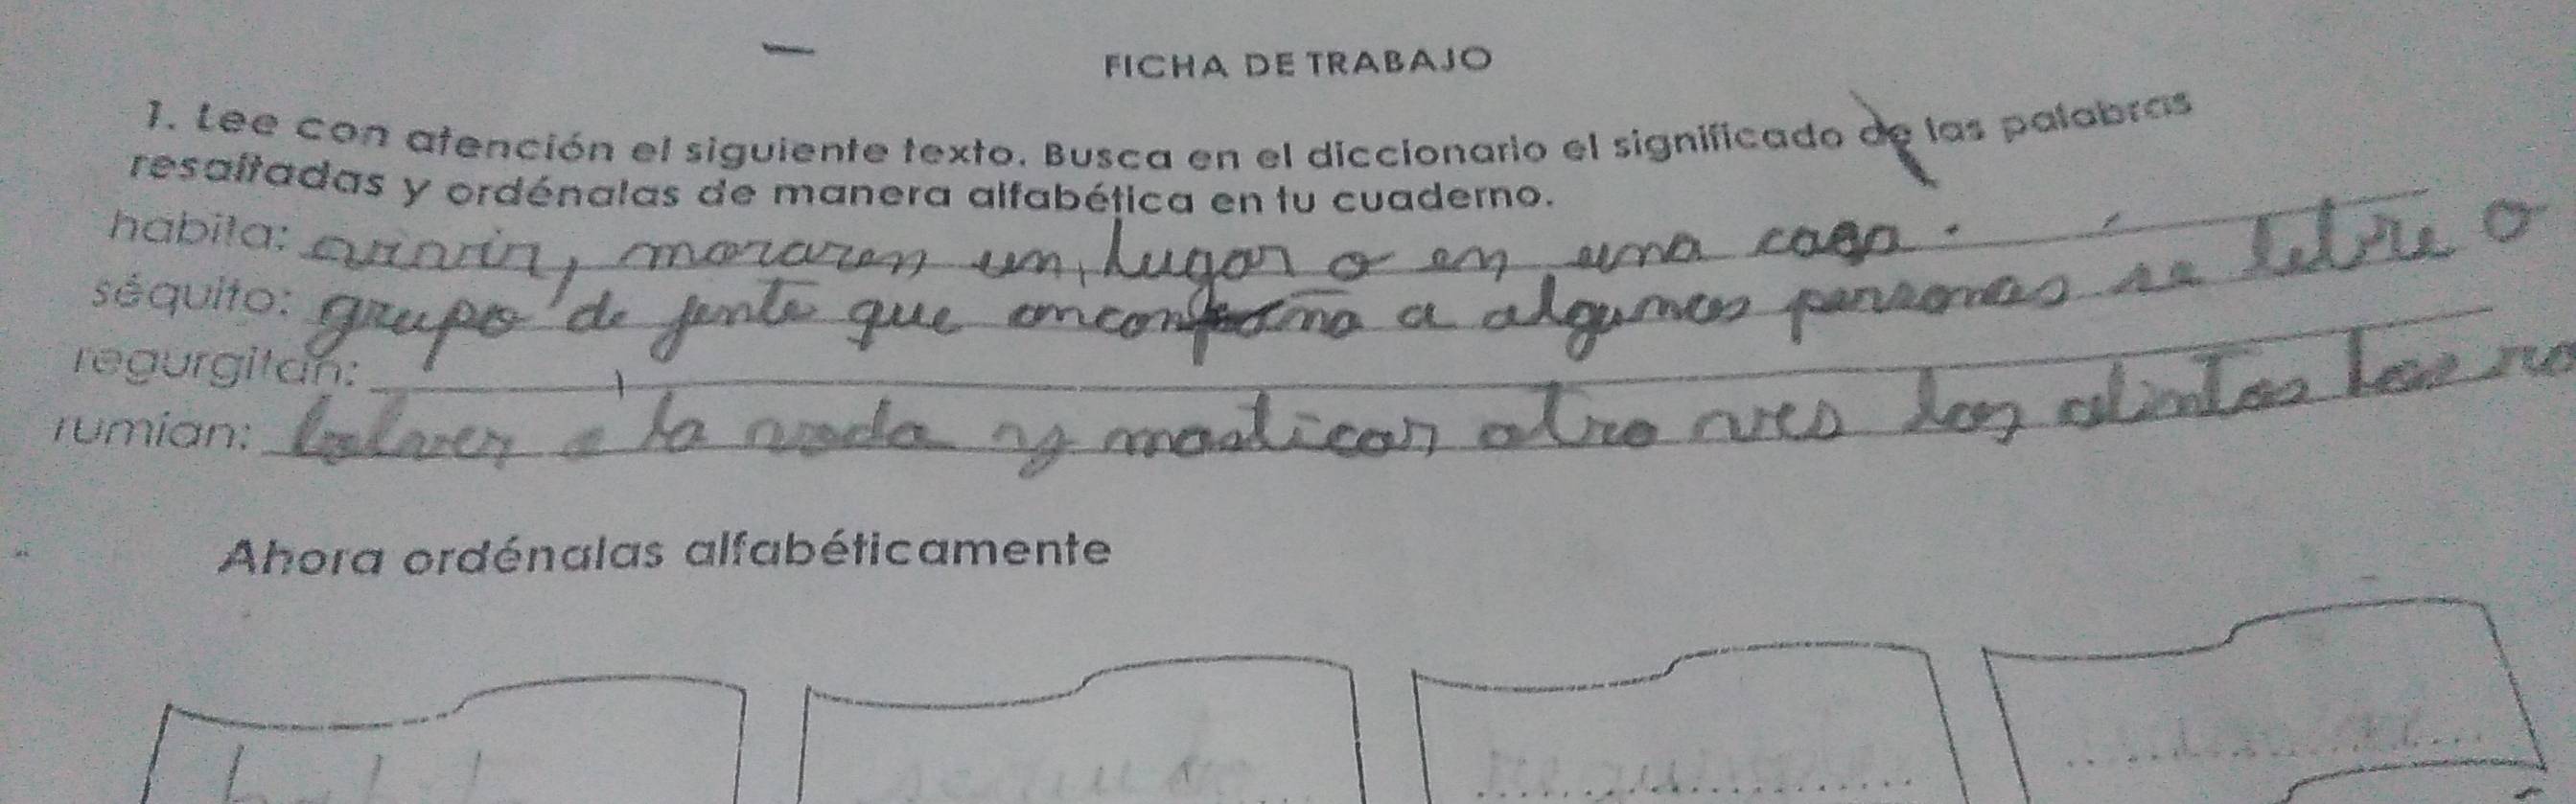 FICHA DE TRABAJO
1. Lee con atención el siguiente texto. Busca en el diccionario el significado de las palabras
resaltadas y ordénalas de manera alfabética en tu cuaderno.
habita: vivir, moraren un lugar o en una casa.
séquito: grupo de jente que a algunas personas se lebre o
regurgitan:
rumian: bolver a la y masticar otra ves los
Ahora ordénalas alfabéticamente